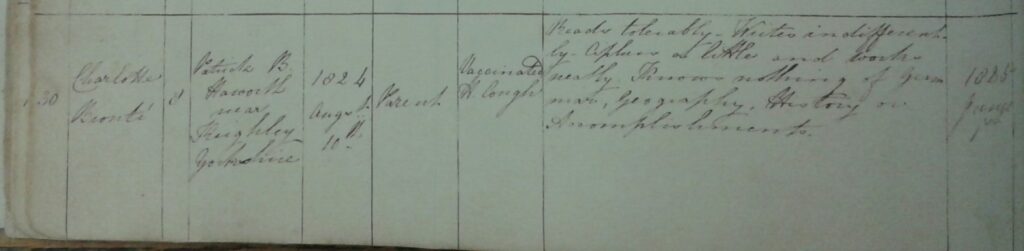 30
Charlotte
Brontë
8
Patrick B.
Haworth
near
Keighley
Yorkshire
1824
Augst
10th
Parent
Vaccinated
H Cough
Reads tolerably - Writes indifferent-
ly - Ciphers a little and works
neatly. Knows nothing of Gram
mar, Geography, History or
Accomplishments.
1825
June
1st